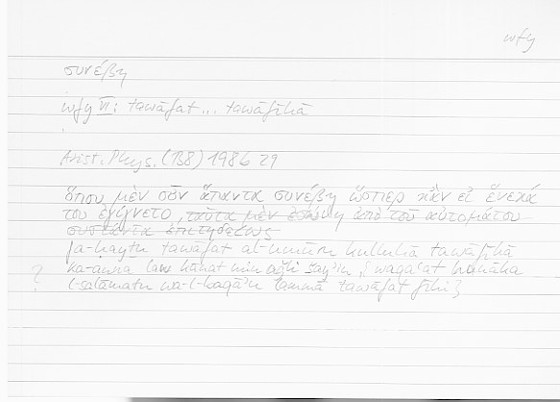 wfy
συνέβη
wfy VI: tawāfat ... tawāfīhā
Arist. Phys. (B8) 198b 29
ὅπου μὲν οὖν ἅπαντα συνέβη ὥσπερ κἂν εἰ ἕνεκά
του ἐγίγνετο, ταῦτα μὲν ἐσώθη ἀπὸ τοῦ αὐτομάτου
συστάντα ἐπιτηδείως
fa-ḥaytu tawāfat al-umūru kulluhā tawāfīhā
? ka-annā law kānat min aǧli šayʾin, waqaʿat hunāka
l-salāmatu wa-l-baqāʾu lammā tawāfat